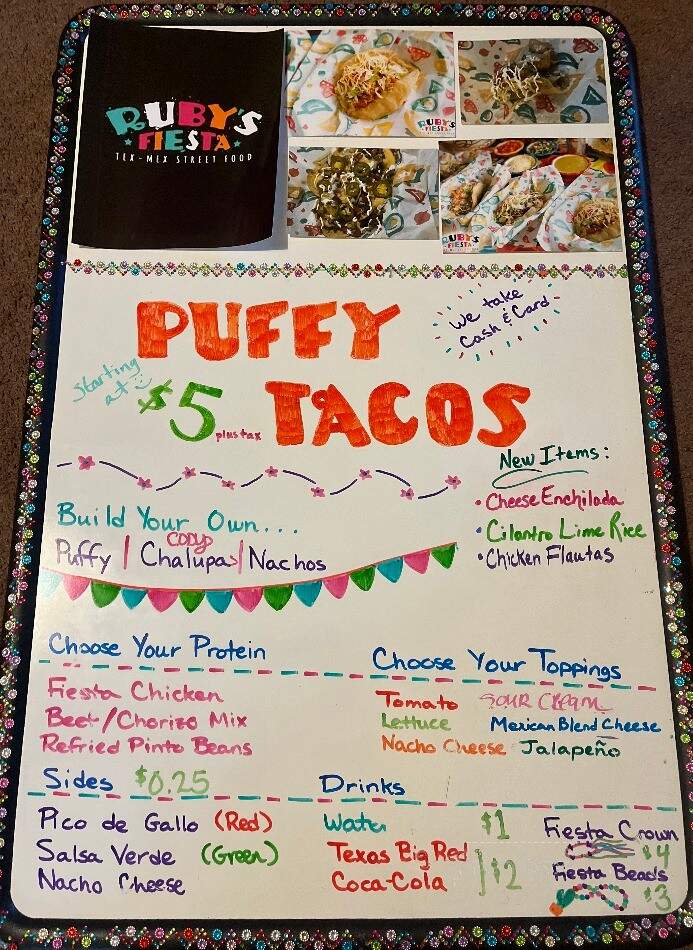 RUBY'S
FIESTA
TEX-MEX STREET FOOD
RUBY'S
FIESTA
RUBY'S
FIESTA
PUFFY
We take
Cash & Card
Starting
at
$5
plus tax
TACOS
New Items:
• Cheese Enchilada
• Cilantro Lime Rice
• Chicken Flautas
Build Your Own...
Puffy / Chalupas / Nachos
Choose Your Protein
Fiesta Chicken
Beef/Chorizo Mix
Refried Pinto Beans
Choose Your Toppings
Tomato SOUR CREAM
Lettuce Mexican Blend Cheese
Nacho Cheese Jalapeño
Sides $0.25
Pico de Gallo (Red)
Salsa Verde (Green)
Nacho Cheese
Drinks
Water $1
Texas Big Red
Coca-Cola
$2
Fiesta Crown
$4
Fiesta Beads
$3